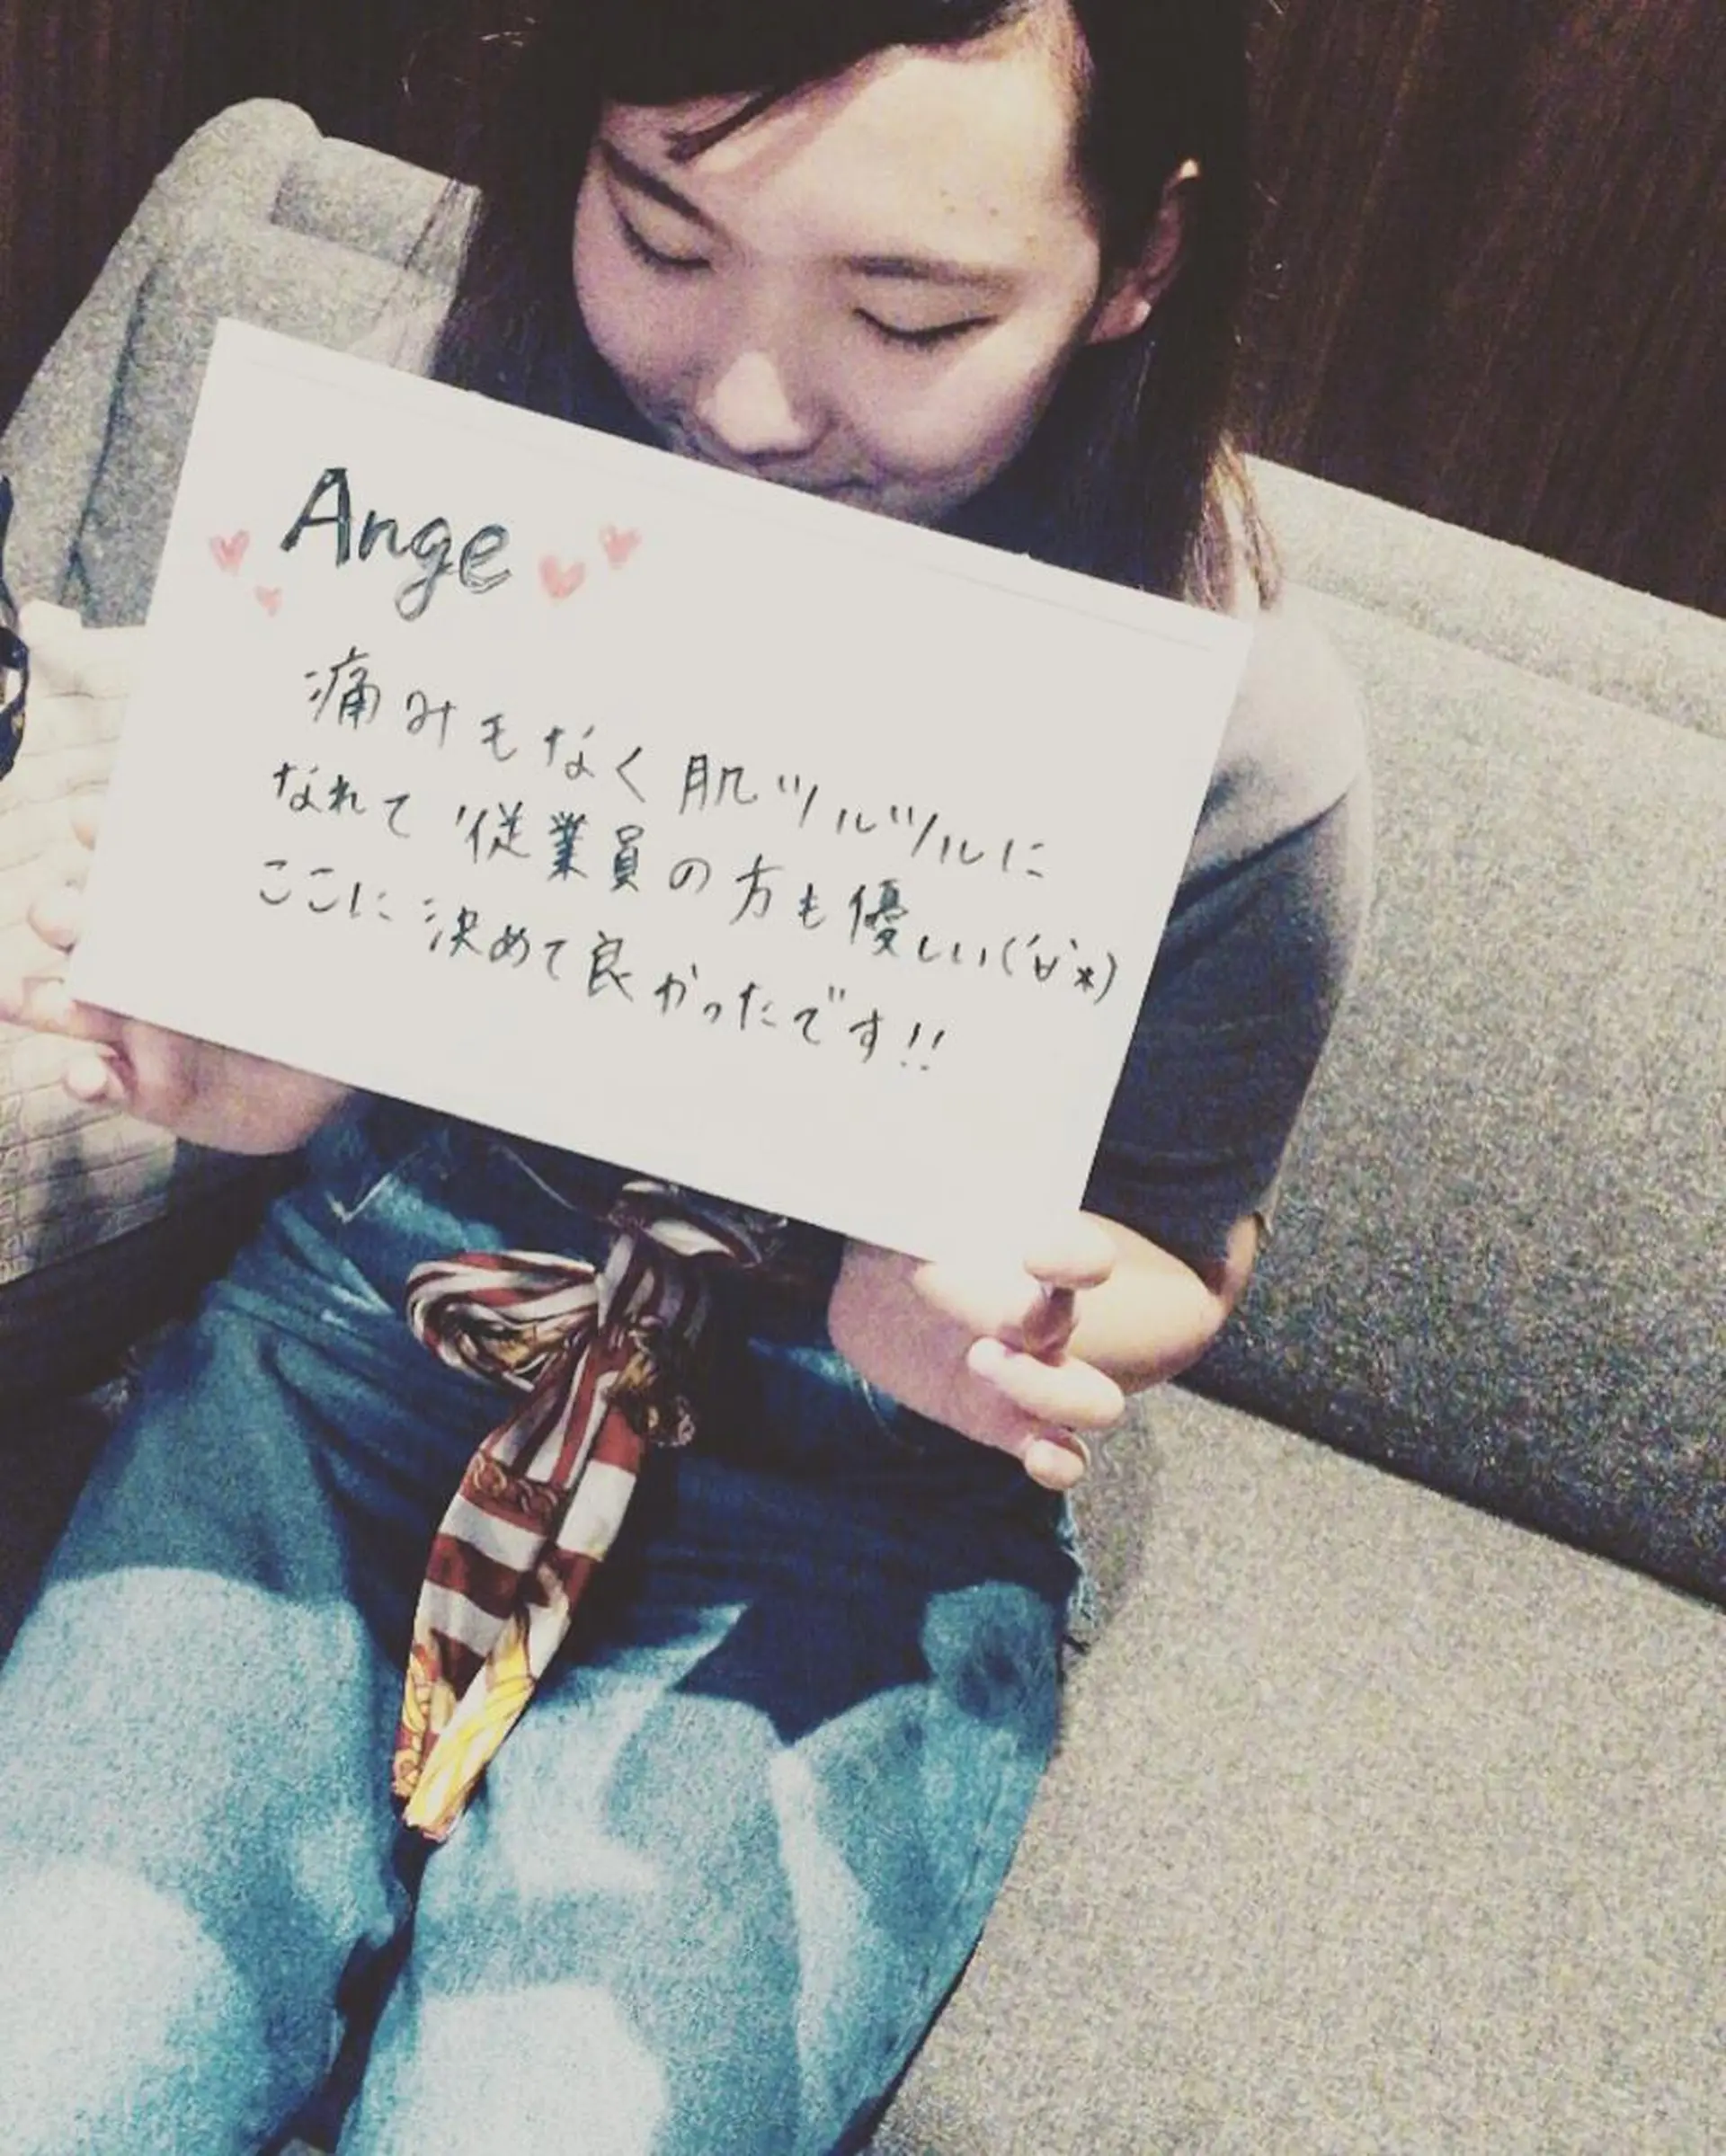 Ange
痛みもなく肌ツルツルに
なれて従業員の方も優しい(´∀`*)
ここに決めて良かったです!!